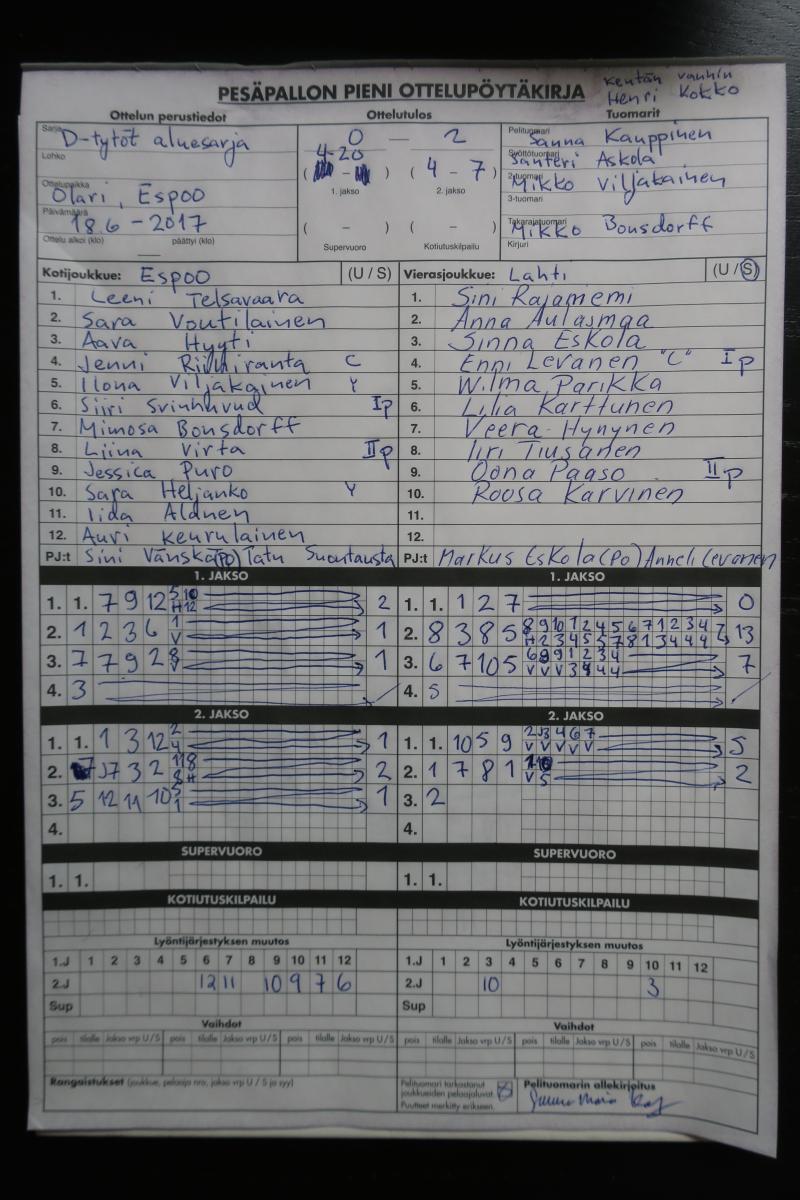 PESÄPALLON PIENI OTTELUPÖYTÄKIRJA
kentän vanhin
Henri Kokko
Ottelun perustiedot Ottelutulos Tuomarit
Sarja D-tytöt aluesarja
Lohko
Ottelupaikka
Olari, Espoo
Päivämäärä
18.6 - 2017
Ottelu alkoi (klo) — päättyi (klo)
0 — 2
4-20
( - ) ( 4 - 7 )
1. jakso 2. jakso
( - ) ( - )
Supervuoro Kotiutuskilpailu
Pelituomari Sanna Kauppinen
Syöttötuomari Santeri Askola
2-tuomari Mikko Viljakainen
3-tuomari
Takarajatuomari Mikko Bonsdorff
Kirjuri
Kotijoukkue: Espoo (U / S)
1. Leeni Telsavaara
2. Sara Voutilainen
3. Aava Hyyti
4. Jenni Riihiranta C
5. Ilona Viljakainen Y
6. Siiri Svinhuvud Ip
7. Mimosa Bonsdorff
8. Liina Virta IIp
9. Jessica Puro
10. Sara Heljanko Y
11. Iida
12. Auri Keurulainen
PJ:t Sini Vänskä (PO) Tatu Suontausta
Vierasjoukkue: Lahti (U / S)
1. Sini Rajamemi
2. Anna Aulasmaa
3. Sinna Eskola
4. Enni Levanen "C" Ip
5. Wilma Parikka
6. Lilia Karttunen
7. Veera Hynynen
8. Iiri Tiusanen
9. Oona Paaso IIp
10. Roosa Karvinen
11.
12.
PJ:t Markus Eskola (PO) Anneli Levanen
1. JAKSO
1. 1. 7 9 12 5 10 2
H 12
2. 1 2 3 6 1 1
V
3. 7 7 9 2 8 1
V
4. 3
1. JAKSO
1. 1. 1 2 7 0
2. 8 3 8 5 8 9 10 1 2 4 5 6 7 1 2 3 4 13
H 2 3 4 5 5 7 8 1 3 4 4 4
3. 6 7 10 5 6 8 9 1 2 3 4 7
V V V 3 4 4 4
4. 5
2. JAKSO
1. 1. 1 3 12 2 1
4
2. 7 3 2 2
3. 5 12 11 10 5 1
1
4.
2. JAKSO
1. 1. 10 5 9 2 3 4 6 7 5
V V V V V
2. 1 7 8 1 2
V 5
3. 2
4.
SUPERVUORO
1. 1.
SUPERVUORO
1. 1.
KOTIUTUSKILPAILU
KOTIUTUSKILPAILU
Lyöntijärjestyksen muutos
1.J 1 2 3 4 5 6 7 8 9 10 11 12
2.J 12 11 10 9 7 6
Sup
Lyöntijärjestyksen muutos
1.J 1 2 3 4 5 6 7 8 9 10 11 12
2.J 10 3
Sup
Vaihdot
pois tilalle Jakso vrp U / S pois tilalle Jakso vrp U / S pois tilalle Jakso vrp U / S
Vaihdot
pois tilalle Jakso vrp U / S pois tilalle Jakso vrp U / S pois tilalle Jakso vrp U / S
Rangaistukset (joukkue, pelaaja nro, jakso vrp U / S ja syy)
Pelituomari tarkastanut
joukkueiden pelaajaluvat
Puutteet merkitty erikseen.
Pelituomarin allekirjoitus